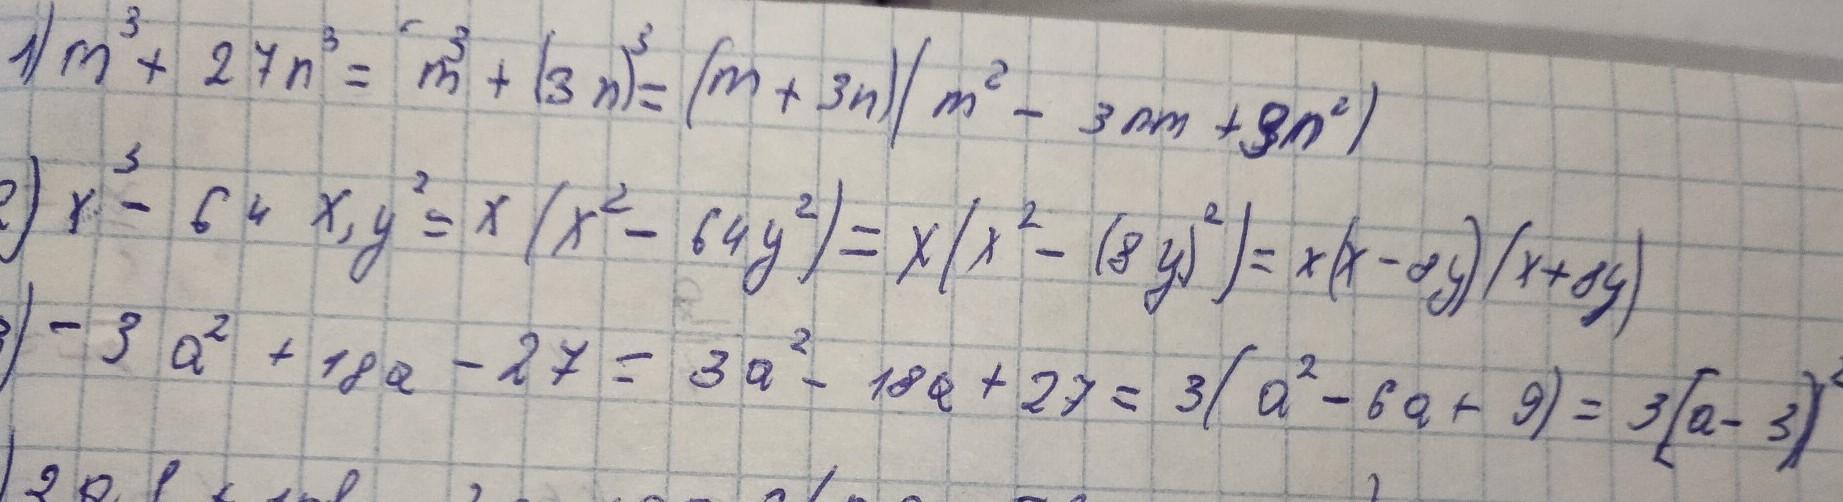 1) m³ + 27n³ = m³ + (3n)³ = (m + 3n)(m² - 3nm + 9n²)
2) x³ - 64 x, y² = x (x² - 64y²) = x(x² - (8y)²) = x(x - 8y)(x + 8y)
3) - 3a² + 18a - 27 = 3a² - 18a + 27 = 3(a² - 6a + 9) = 3(a - 3)²